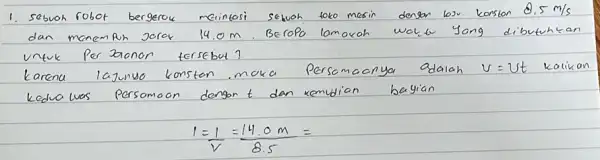 1. sebuah robot bergerak melintasi sebuah toko mesin dengan laju konstan 8,5 m/s
dan menempuh jarak 14.0 m. Berapa lamakah waktu yang dibutuhkan
untuk Perjalanan tersebut ?
karena lajunya konstan, maka Persamaannya adalah V = Ut kalikan
kedua luas Persamaan dengan t dan kemudian bagian
1 = 1/V = 14.0 m/8.5 =